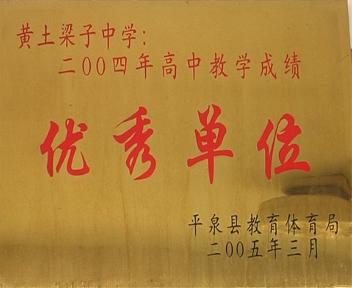 黄土梁子中学：
二〇〇四年高中教学成绩
优秀单位
平泉县教育体育局
二〇〇五年三月